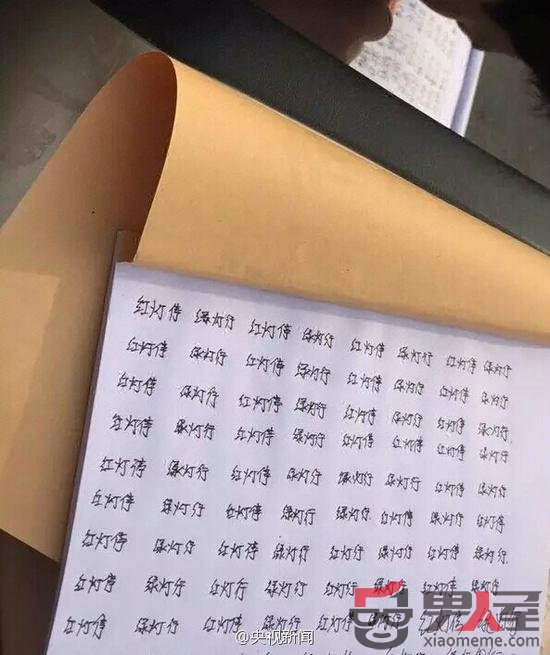 红灯停 绿灯行 红灯停 绿灯行 红灯停 绿灯行 红灯停 绿灯行
红灯停 绿灯行 红灯停 绿灯行 红灯停 绿灯行 红灯停 绿灯行
红灯停 绿灯行 红灯停 绿灯行 红灯停 绿灯行 红灯停 绿灯行
红灯停 绿灯行 红灯停 绿灯行 红灯停 红灯停 红灯停 绿灯行
红灯停 绿灯行 红灯停 绿灯行 绿灯行 绿灯行 红灯停 绿灯行
红灯停 绿灯行 红灯停 绿灯行 绿灯行 红灯停 绿灯行 红灯停
红灯停 绿灯行 红灯停 绿灯行 红灯停 绿灯行 红灯停 绿灯行
红灯停 绿灯行 红灯行 绿灯行 红灯停 绿灯行 红灯停 绿灯行
红灯停 绿灯行 红灯停 绿灯行 红灯停 绿灯行 红灯停 绿灯行
@央视新闻
男人屋
xiaomeme.com